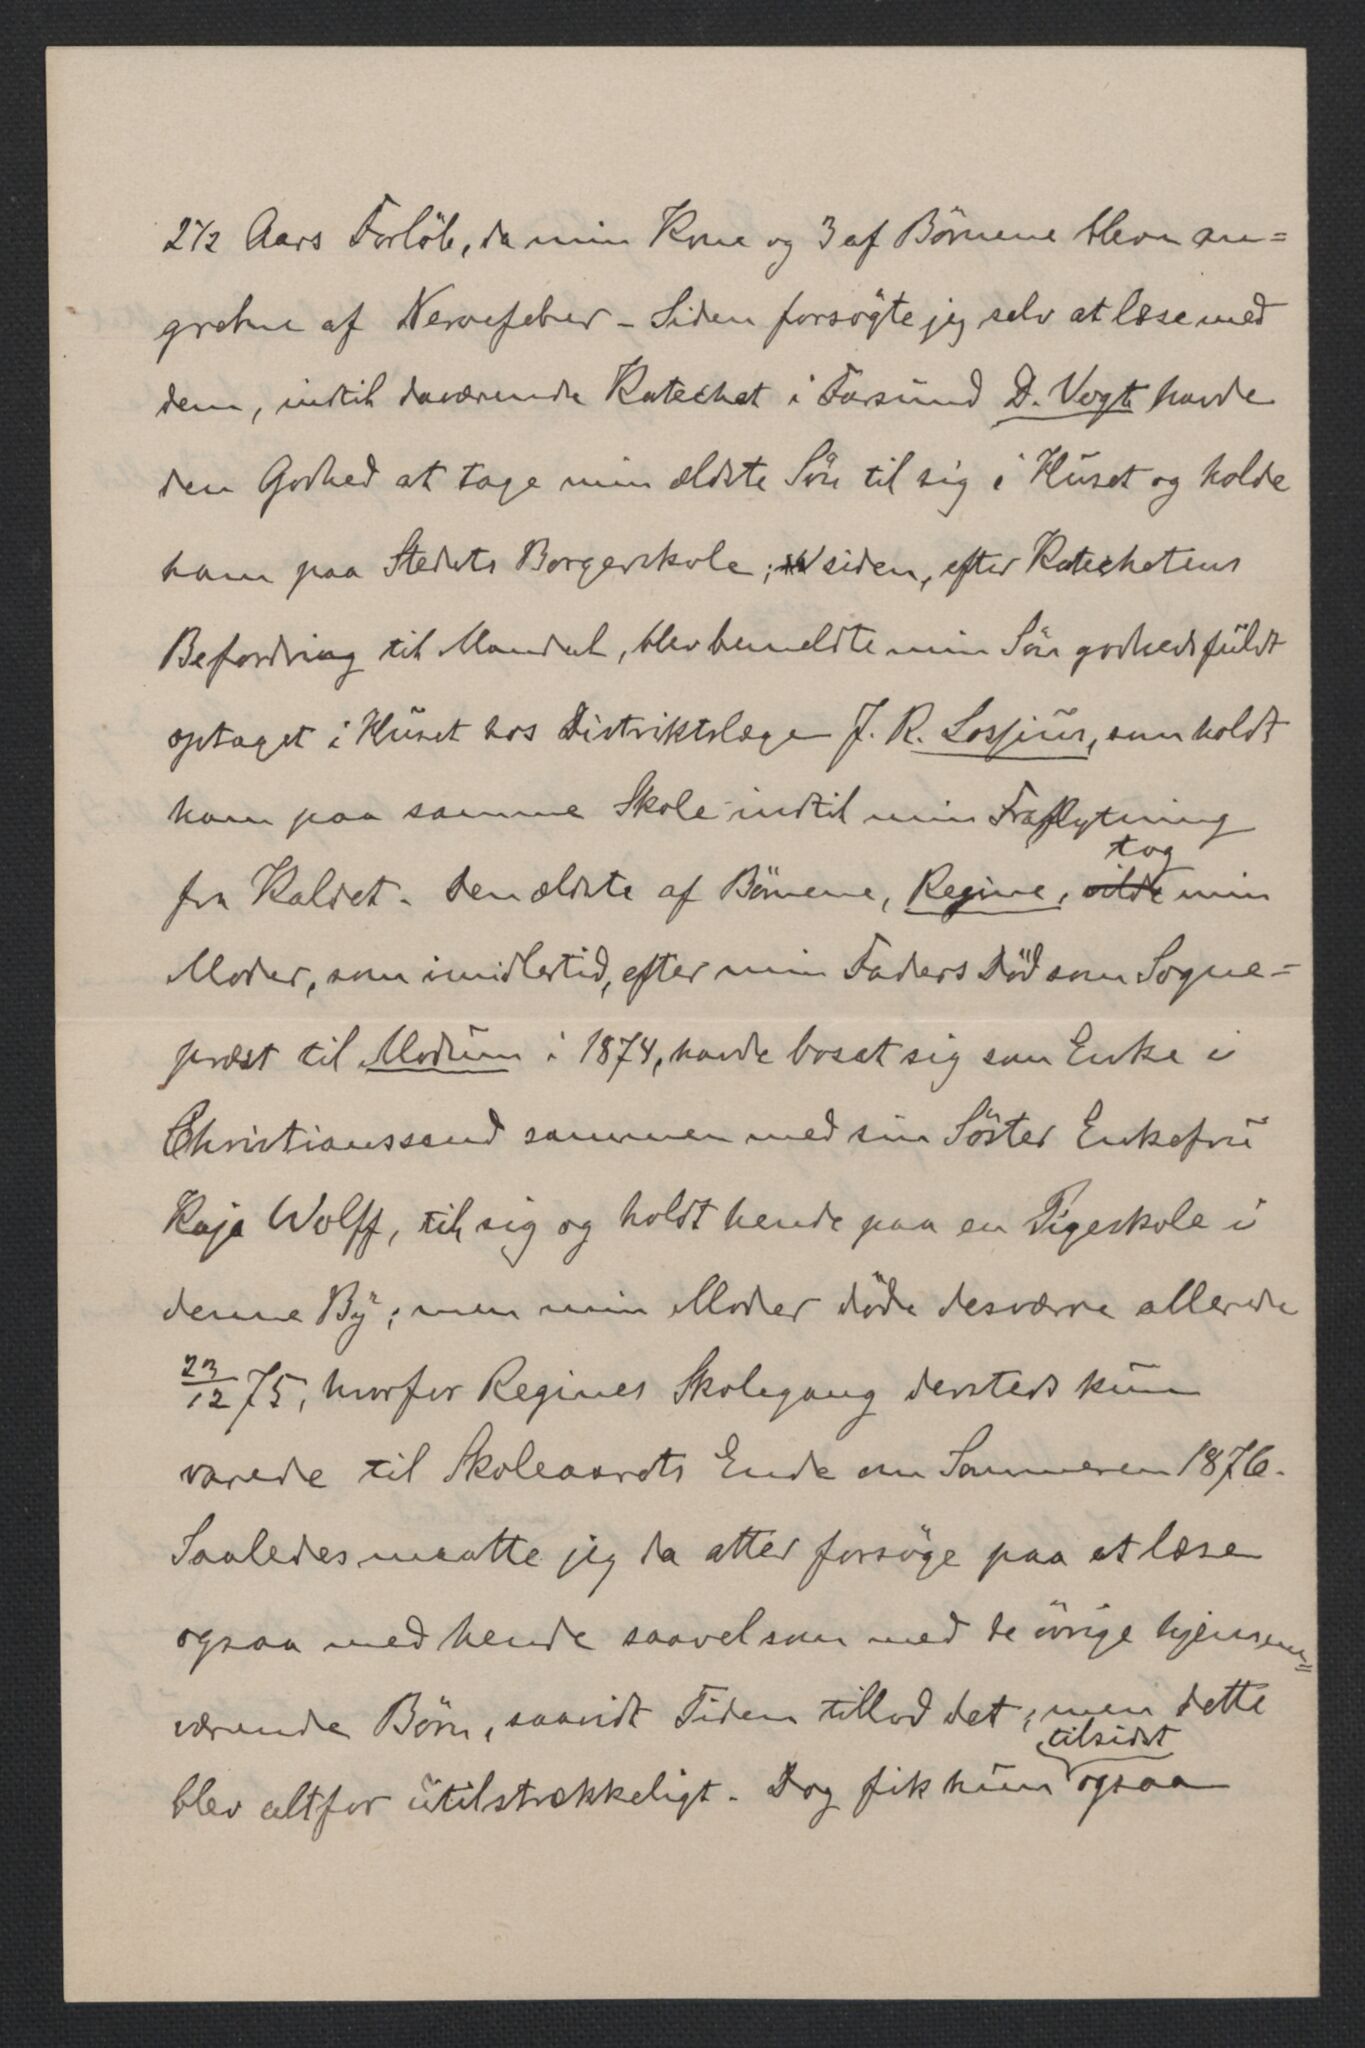 2 1/2 Aars Forlöb, da min Kone og 3 af Börnene bleve an=
grebne af Nervefeber – Siden forsögte jeg selv at læse med
dem, indtil daværende Katechet i Farsund D. Vogt havde
den Godhed at tage min ældste Sön til sig i Huset og holde
ham paa Stedets Borgerskole; siden, efter Katechetens
Befordring til Mandal, blev bemeldte min Sön godhedsfüldt
optaget i Huset hos Distriktslæge J. R. Lossius, som holdt
ham paa samme Skole indtil min Fraflytning
fra Kaldet. Den ældste af Börnene, Regine, vilde tog min
Moder, som imidlertid, efter min Faders Död som Sogne=
præst til Modum i 1874, havde bosat sig som Enke i
Christianssand sammen med sin Söster Enkefrü
Kaja Wolff, til sig og holdt hende paa en Pigeskole i
denne By; men min Moder döde desværre allerede
23/12 75, hvorfor Regines Skolegang dersteds kün
varede til Skoleaarets Ende om Sommeren 1876.
Saaledes maatte jeg da atter forsöge paa at læse
ogsaa med hende saavelsom med de övrige hjemme=
værende Börn, saavidt Tiden tillod det; men dette
blev altfor ütilstrækkeligt. Dog fik hün tilsidst ogsaa